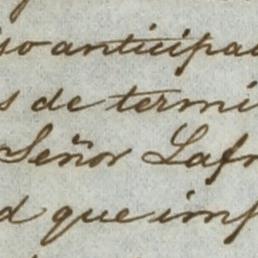 so anticipa
s de termi
Señor Lafr
d que imp